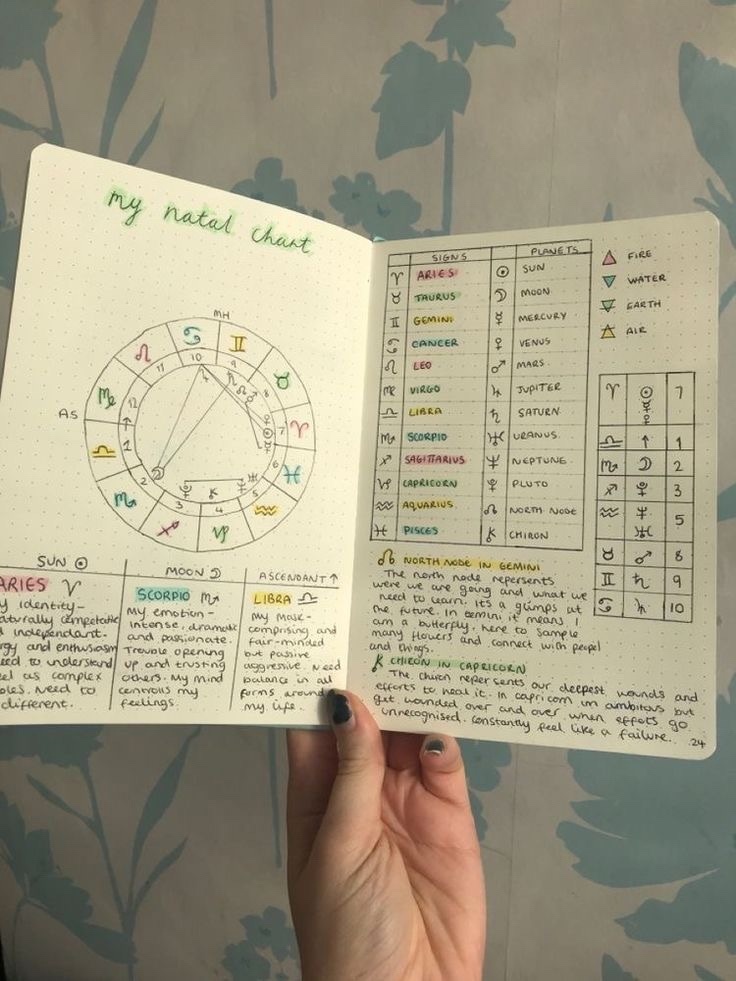 my natal chart
MH
10
9
11
8
12
7
AS
1
6
2
5
3
4
SUN ☉
ARIES ♈
identity-
independent.
and enthusiasm
to understand
as complex
Need to
different.
MOON ☽
SCORPIO ♏
My emotion-
intense, dramatic
and passionate.
Trouble opening
up and trusting
others. My mind
controlls my
feelings.
ASCENDANT ↑
LIBRA ♎
My mask-
comprising and
fair-minded
but passive
aggressive. Need
balance in all
forms around
my life.
SIGNS PLANETS
♈ ARIES ☉ SUN
♉ TAURUS ☽ MOON
♊ GEMINI ☿ MERCURY
♋ CANCER ♀ VENUS
♌ LEO ♂ MARS
♍ VIRGO ♃ JUPITER
♎ LIBRA ♄ SATURN
♏ SCORPIO ♅ URANUS
♐ SAGITTARIUS ♆ NEPTUNE
♑ CAPRICORN ♇ PLUTO
♒ AQUARIUS ☊ NORTH NODE
♓ PISCES ⚷ CHIRON
FIRE
WATER
EARTH
AIR
♈ ☉ ☿ ♀ 7
♎ ↑ 1
♏ ☽ 2
♐ ♇ 3
♒ ♆ ♅ 5
♉ ♂ 8
♊ ♄ 9
♋ ♃ 10
☊ NORTH NODE IN GEMINI
The north node repersents
were we are going and what we
need to learn. Its a glimps at
the future. In Gemini it means I
am a butterfly, here to sample
many flowers and connect with peopel
and things.
⚷ CHIRON IN CAPRICORN
The chiron repersents our deepest wounds and
efforts to heal it. In capricorn im ambitous but
get wounded over and over when effots go
unrecognised. Constantly feel like a failure.
24